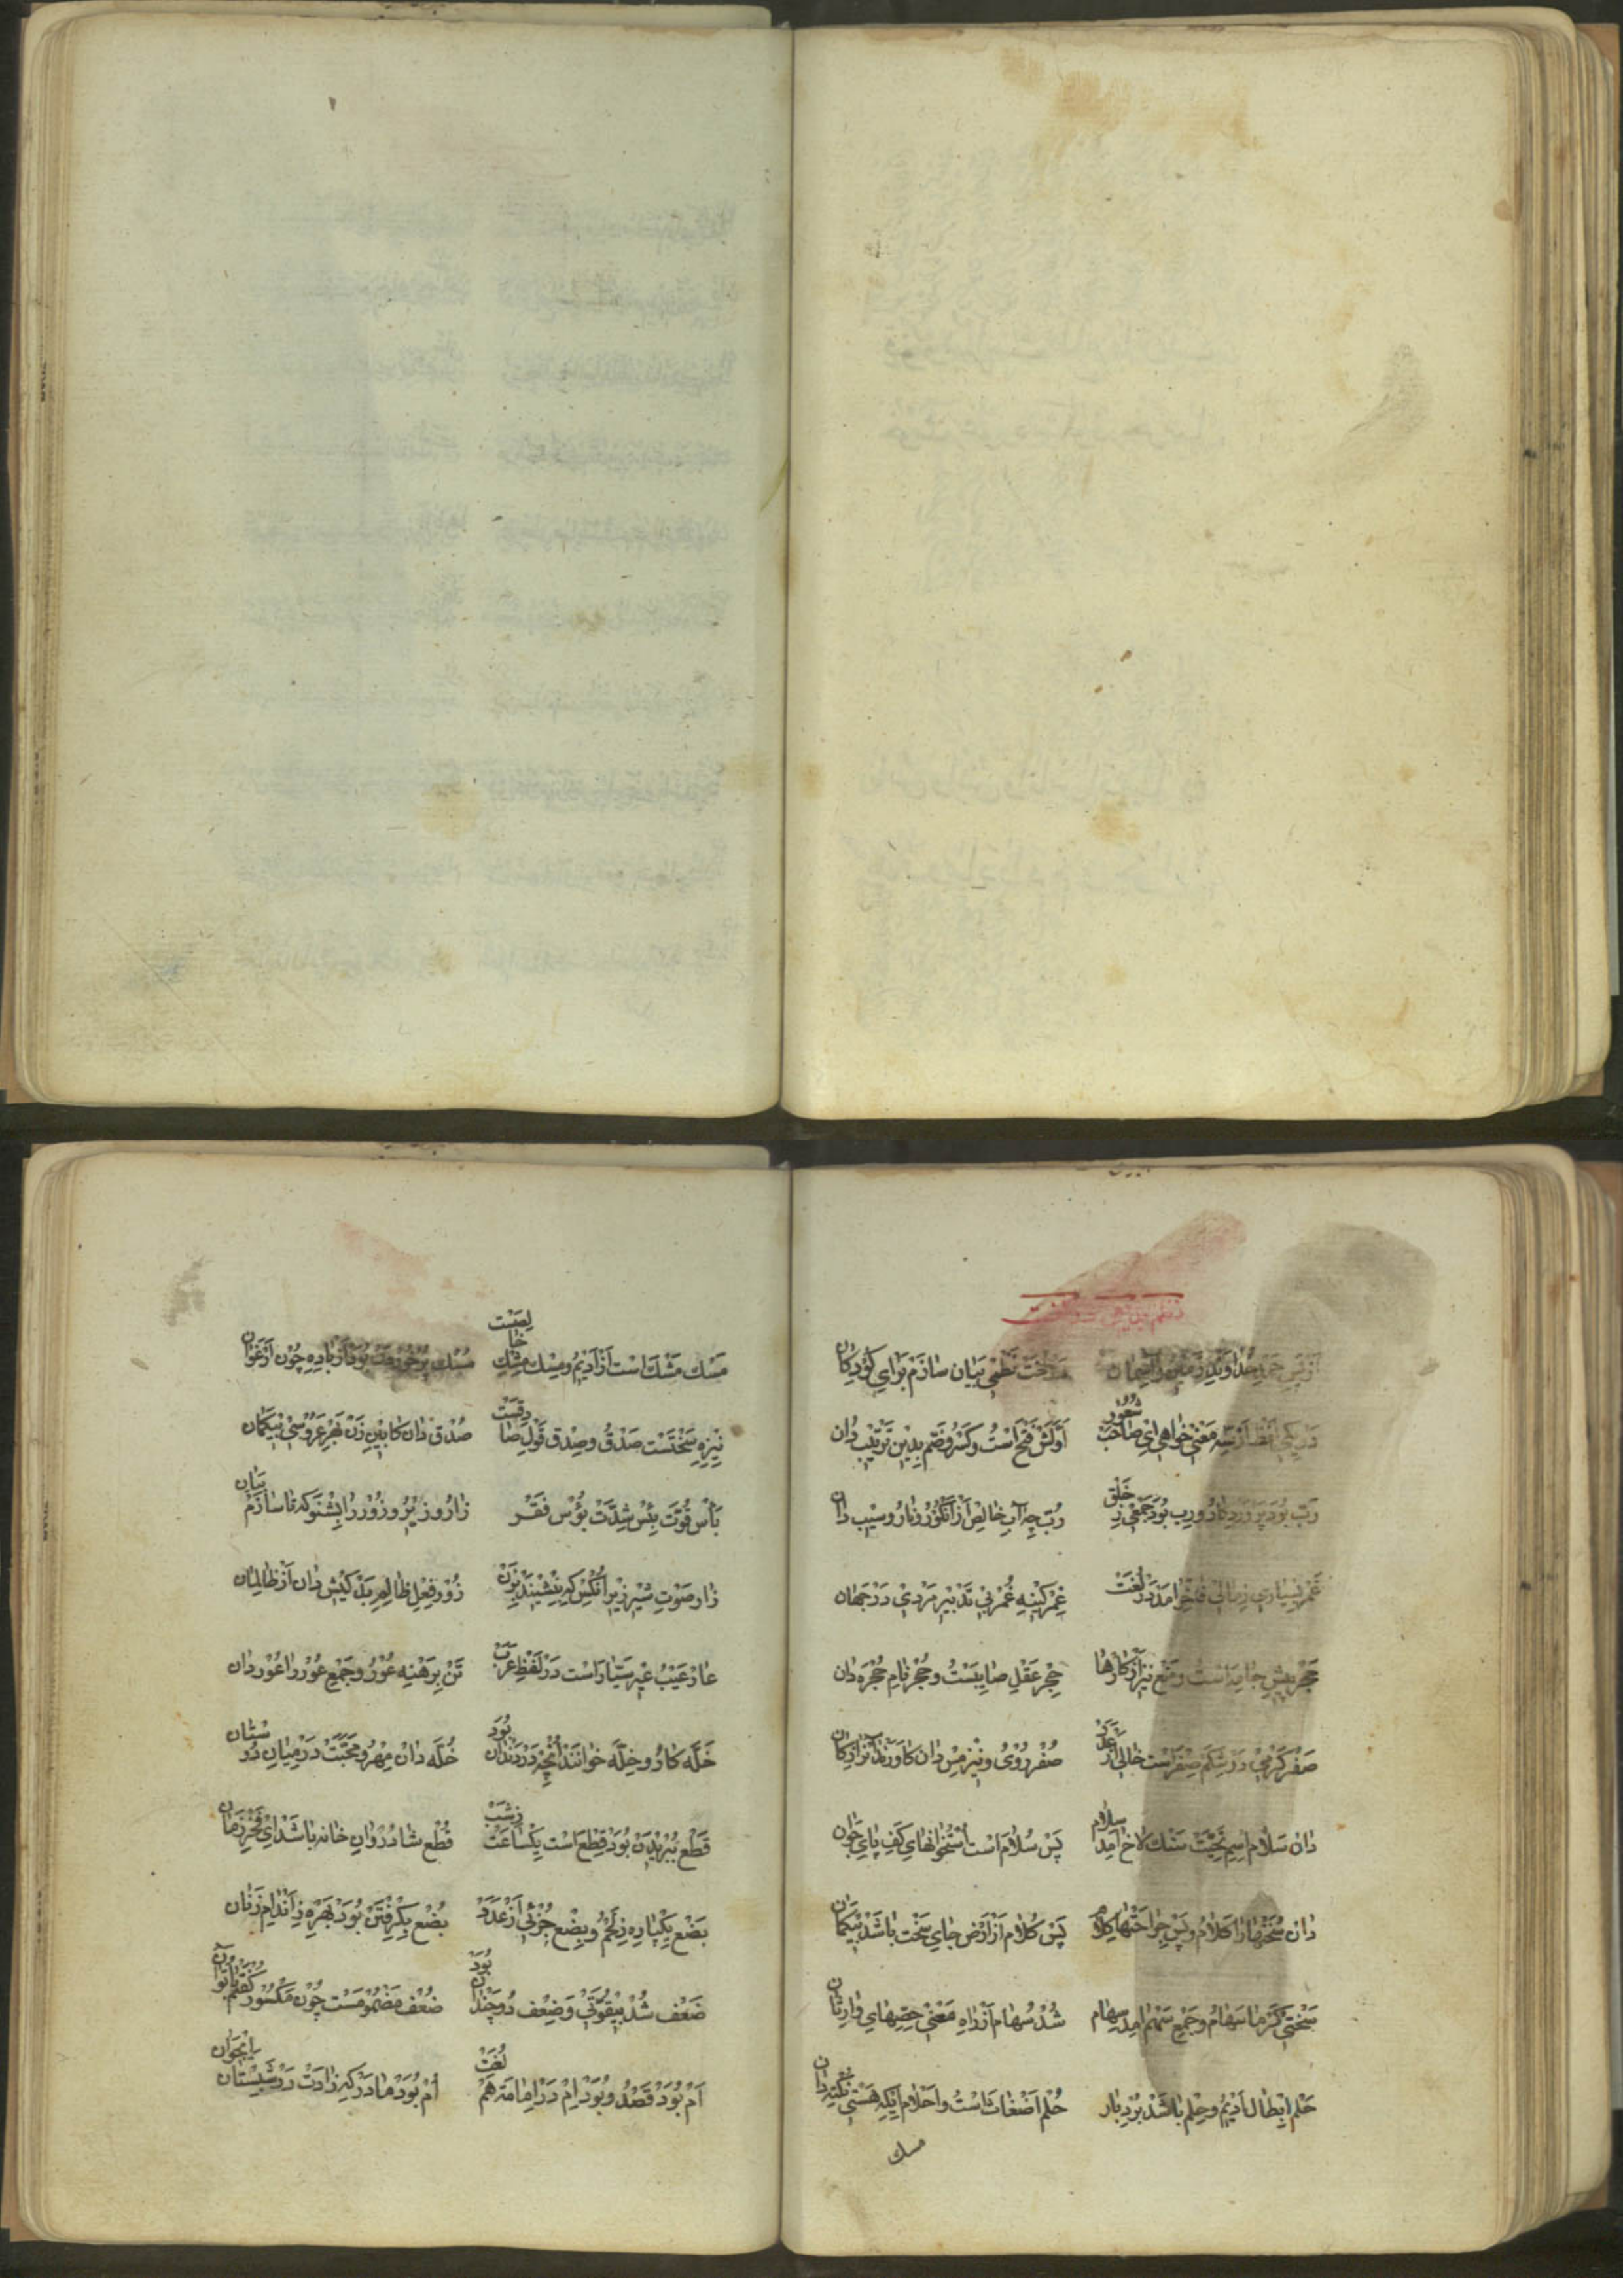 از پس حمد خداوند زمین و آسمان مثلثت نظمی بیان سازم برای کودکان
در یکی لفظ ار سه معنی خواهی ای صاحب شعور اولش فتح است و کسر و ضم بدین ترتیب دان
رب بود پروردکار و رب بود جمعی ز خلق رب چه آب خالص از انکور و نار و سیب دان
غمر بسیاری ز مال فاخر امد در لغت غمر کینه غمر بی تدبیر مردی در جهان
حجر پیش جامه است و منع نیز از کارها حجر عقل صایبست و حجر نام حجره دان
صفر کرمی در شکم صفر است خالی از عدد صفر روی و نیز مس دان کاورند آنرا ز کان
دان سلام اسم تحیت سنک لاخ امد سلام پس سلام است استخوانهای کف پای جوان
دان سخنها را کلام و پس جراحتها کلام پس کلام از ارض جای سخت باشد بیکمان
سختی کرما سهام و جمع سهم امد سهام شد سهام از راه معنی حصهای وارثان
حلم ابطال ادیم و حلم باشد بردبار حلم اضغاث است و احلام ایکه هستی نکته دان
مسك
مسك مشك است از ادیم و مسك مشك خالصست مسك پر خورست بود از باده چون ارغوان
نیزه سختست صدق و صدق قول صادقست صدق دان کابین زن بهر عروسی بیکمان
بأس قوت بئس شدت بؤس فقر زار و زیر و زور را بشنو که تا سازم بیان
زار صوت شیر زیر آنکس که بنشیند بزن زور فعل ظالم بد کیش دان از ظالمان
عار عیب عیر سیار است در لفظ عرب تن برهنه عور و جمع عور را عور دان
خله کار و خله خوانند آنچه در دندان بود خله دان مهر و محبت در میان دوستان
قطع ببریدن بود قطع است یکساعت ز شب قطع شادروان خانه باشد ای فخر زمان
بضع یکپاره ز لحم و بضع جزئی از عدد بضع بکرفتن بود بهره ز اندام زنان
ضعف شد بیقوتی و ضعف دو چندان بود ضعف مضمومست چون مکسور
ام بود قصد و بود ام در امامه هم لغت ام بود مادر که زادت در شبستان